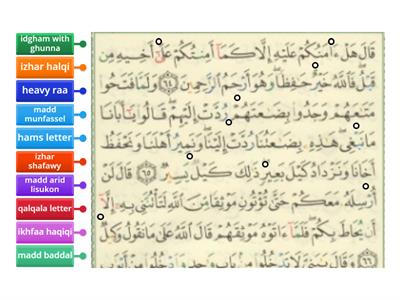 idgham with
ghunna
izhar halqi
heavy raa
madd
munfassel
hams letter
izhar
shafawy
madd arid
lisukon
qalqala letter
ikhfaa haqiqi
madd baddal
قَالَ هَلْ ءَامَنُكُمْ عَلَيْهِ إِلَّا كَمَآ أَمِنتُكُمْ عَلَىٰٓ أَخِيهِ مِن
قَبْلُ فَٱللَّهُ خَيْرٌ حَٰفِظًا وَهُوَ أَرْحَمُ ٱلرَّٰحِمِينَ ٦٤ وَلَمَّا فَتَحُوا۟
مَتَٰعَهُمْ وَجَدُوا۟ بِضَٰعَتَهُمْ رُدَّتْ إِلَيْهِمْ قَالُوا۟ يَٰٓأَبَانَا
مَا نَبْغِى هَٰذِهِۦ بِضَٰعَتُنَا رُدَّتْ إِلَيْنَا وَنَمِيرُ أَهْلَنَا وَنَحْفَظُ
أَخَانَا وَنَزْدَادُ كَيْلَ بَعِيرٍ ذَٰلِكَ كَيْلٌ يَسِيرٌ ٦٥ قَالَ لَنْ
أُرْسِلَهُۥ مَعَكُمْ حَتَّىٰ تُؤْتُونِ مَوْثِقًا مِّنَ ٱللَّهِ لَتَأْتُنَّنِى بِهِۦٓ إِلَّآ
أَن يُحَاطَ بِكُمْ فَلَمَّآ ءَاتَوْهُ مَوْثِقَهُمْ قَالَ ٱللَّهُ عَلَىٰ مَا نَقُولُ وَكِيلٌ
٦٦ وَقَالَ يَٰبَنِىَّ لَا تَدْخُلُوا۟ مِنۢ بَابٍ وَٰحِدٍ وَٱدْخُلُوا۟ مِنْ أَبْوَٰبٍ